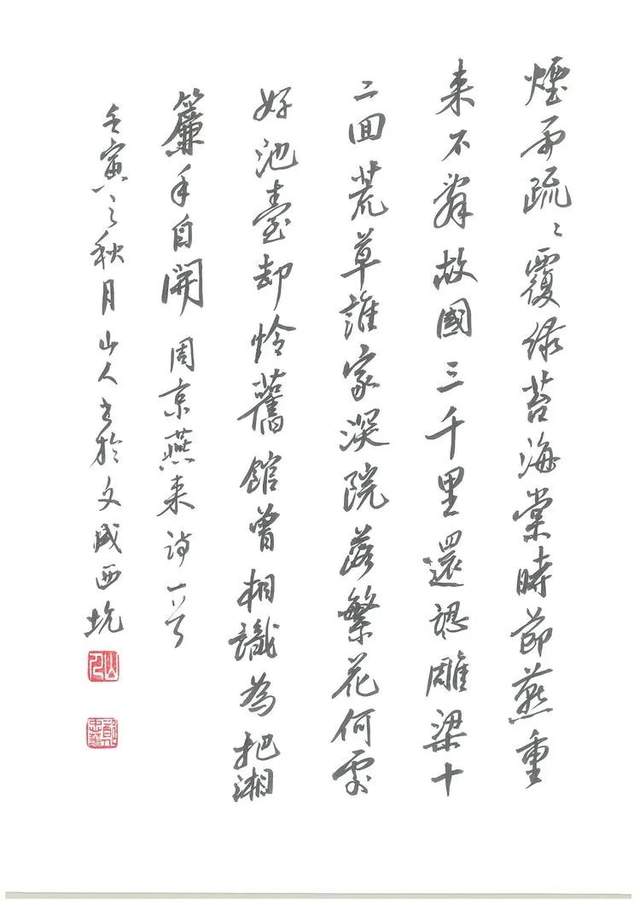 煙雨疏〻覆緑苔海棠時節燕重
来不辭故國三千里還認雕梁十
二回荒草誰家深院落繁花何處
好池臺却怜舊館曾相識為把湘
簾手自開 周京燕来詩一首
壬寅之秋月山人书於文成西坑
山人